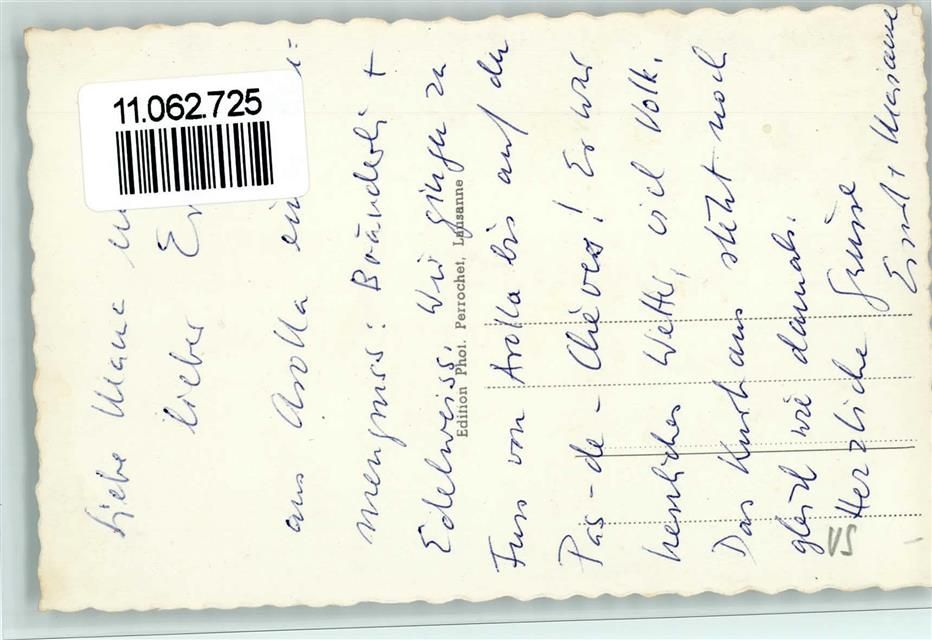 11.062.725
Liebe Mane
lieber
aus Arolla ein
mengruss: Bränderli +
Edelweiss. Wir gingen zu
Fuss von Arolla bis auf den
Pas-de-Chèvres! Es war
herrliches Wetter, viel Volk.
Das Kurhaus steht noch
gleich wie damals.
Herzliche Grüsse
Ernst + Marianne
Edition Phot. Perrochet, Lausanne
VS